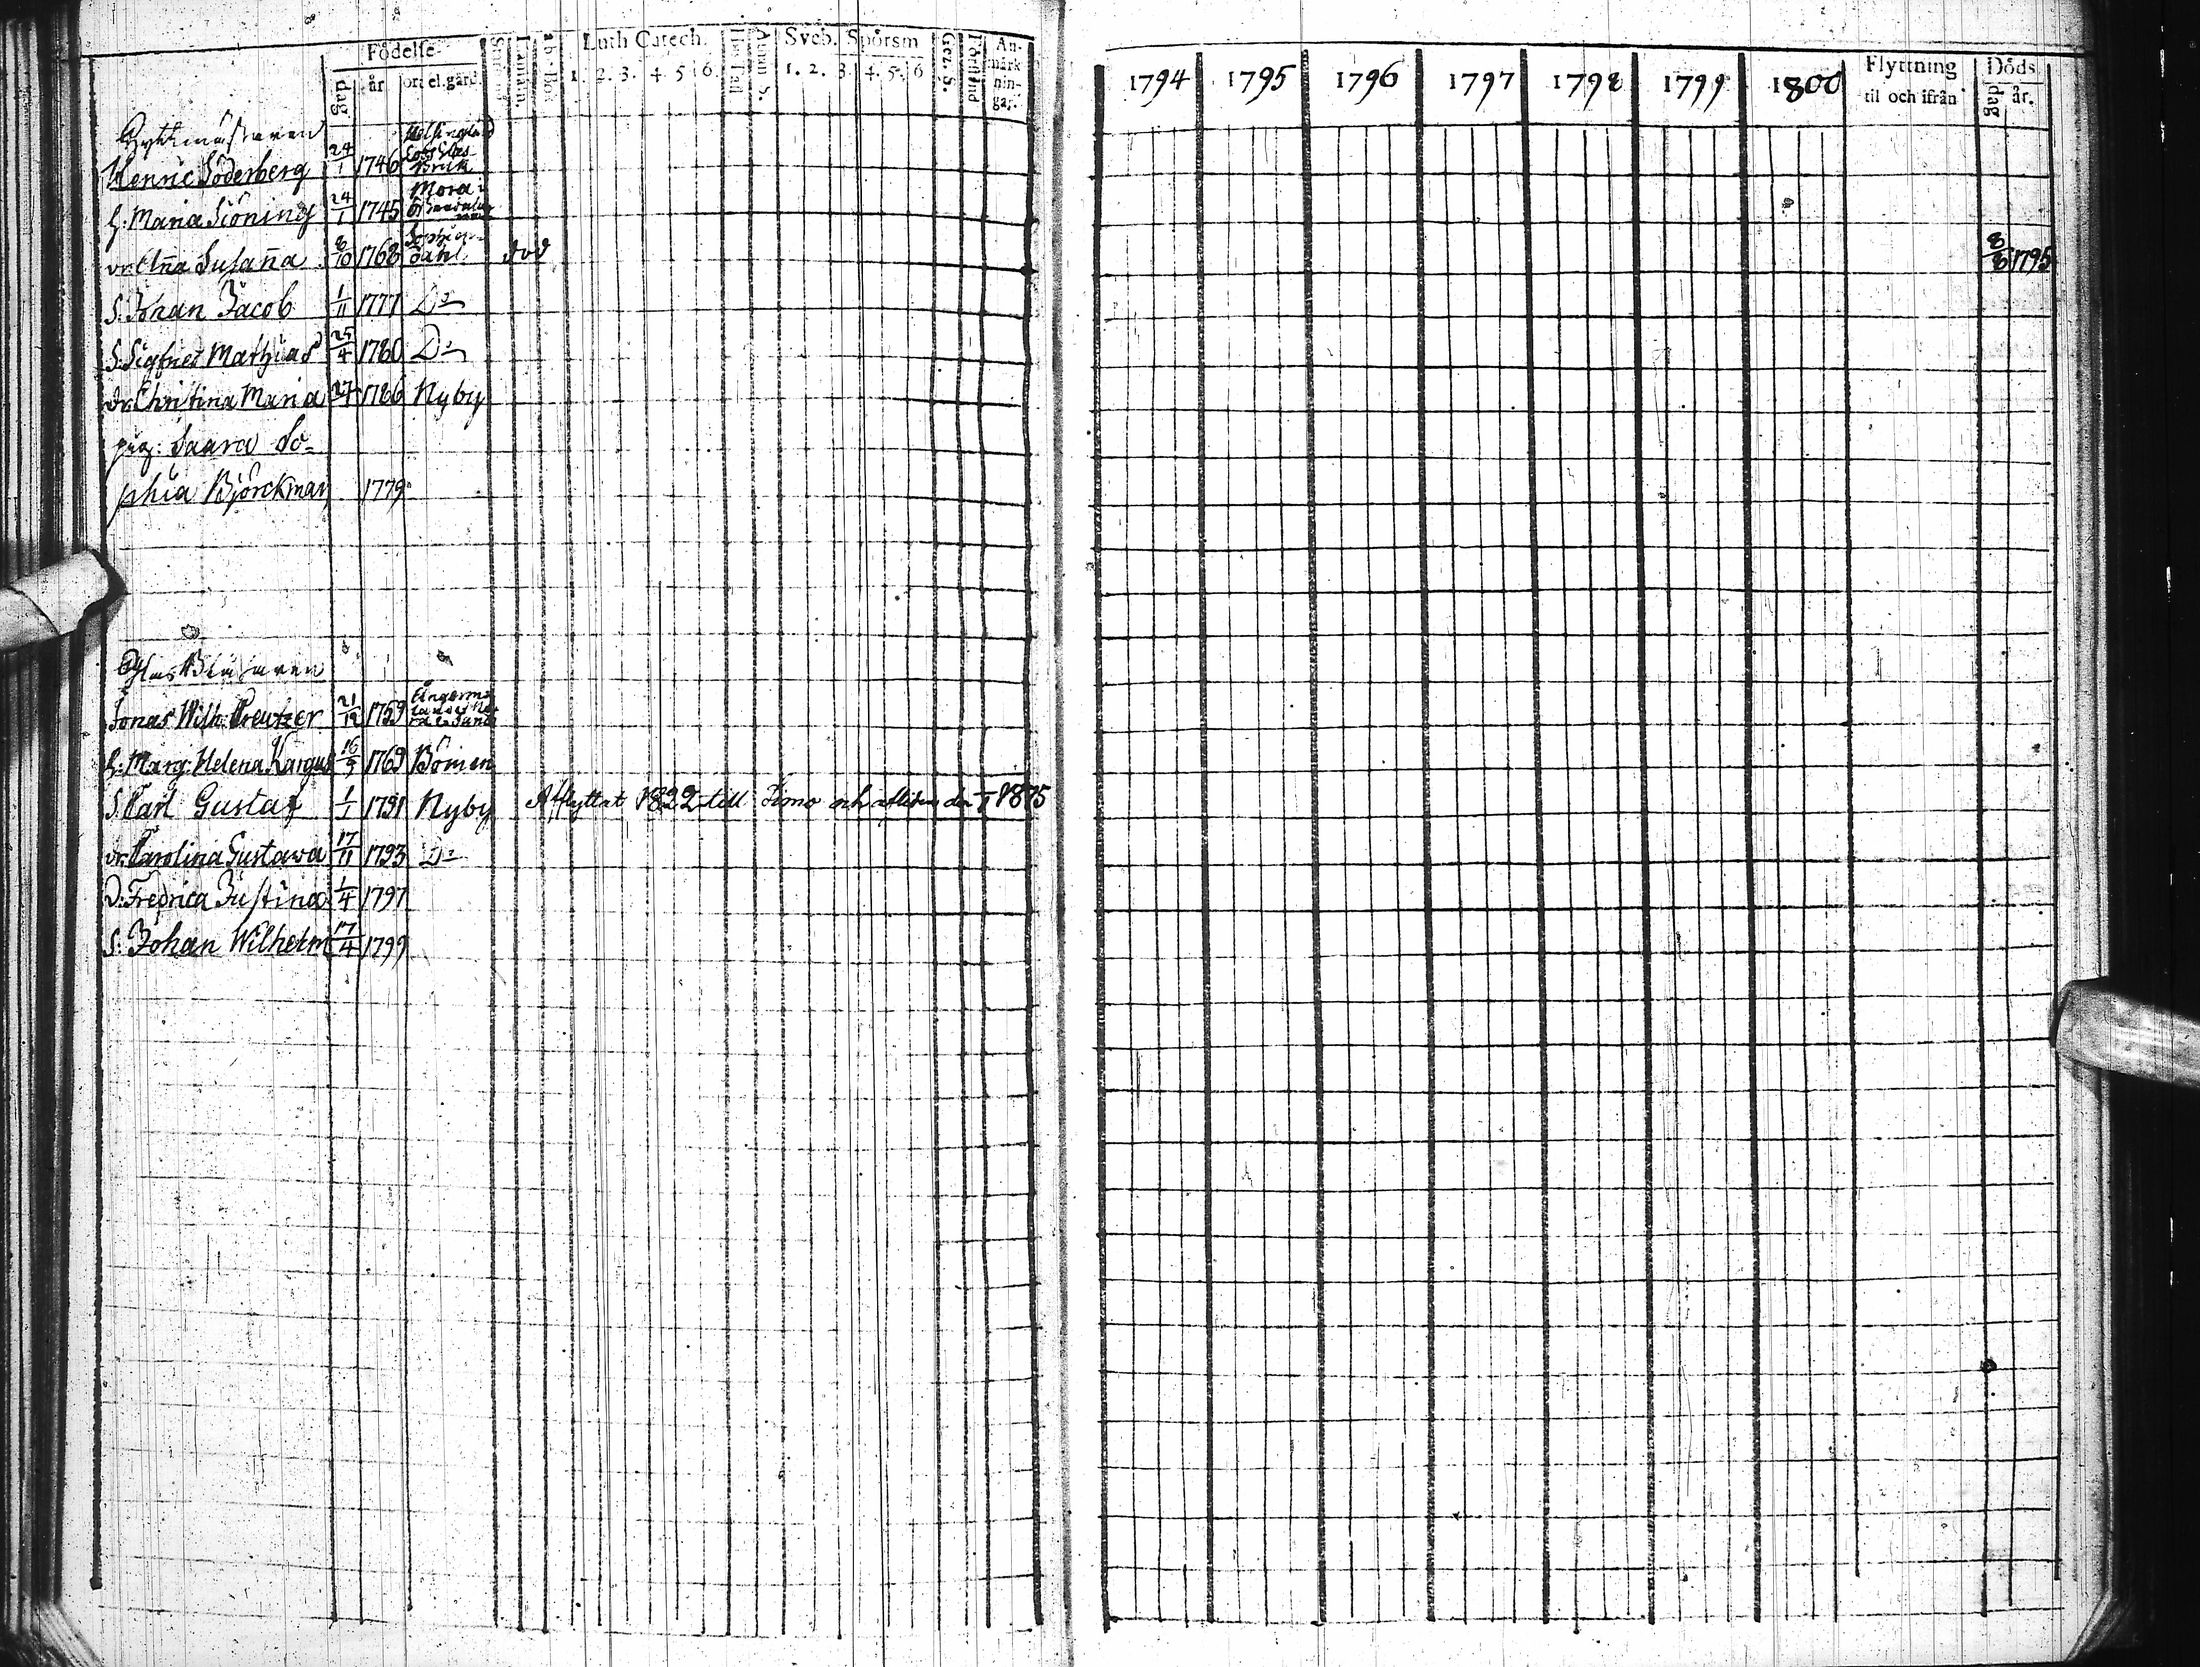 Födelse- Luth Catech. Sveb. Spörsm Gez. S. Förstånd An-märk-nin-gar.
dag år ort el. gård. ab. Bok 1. 2. 3. 4. 5 6. 1. 2. 3. 4. 5. 6
1794 1795 1796 1797 1798 1799 1800 Flyttning til och ifrån Döds dag år.
Hyttmästaren
Henric Söderberg 24/1 1746
h: Maria Siöning 24/1 1745 Mora
dr. Ana Susana 8/10 1768 dahl död 8/6 1795
S. Johan Jacob 1/11 1777 Do
S. Sigfried Mathias 25/4 1780 Do
dr. Christina Maria 1786 Nyby
pig: Saara So-
phia Björckman 1779
Glas Blåsaren
Jonas Wilh: Kreutzer 21/12 1759
h: Marg: Helena 16/9 1769 Bömen
S. Carl Gustaf 1/1 1791 Nyby Afflyttat 1822 till och afliden den 1875
dr. Carolina Gustava 17/11 1793 Do
D: Fredrica Justina 1/4 1797
S: Johan Wilhelm 17/4 1799